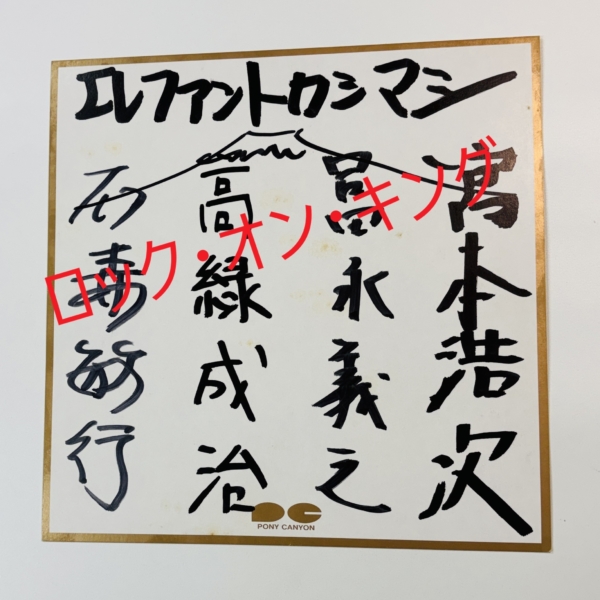 エレファントカシマシ
宮本浩次
冨永義之
高緑成治
石森敏行
ロック・オン・キング
PC
PONY CANYON